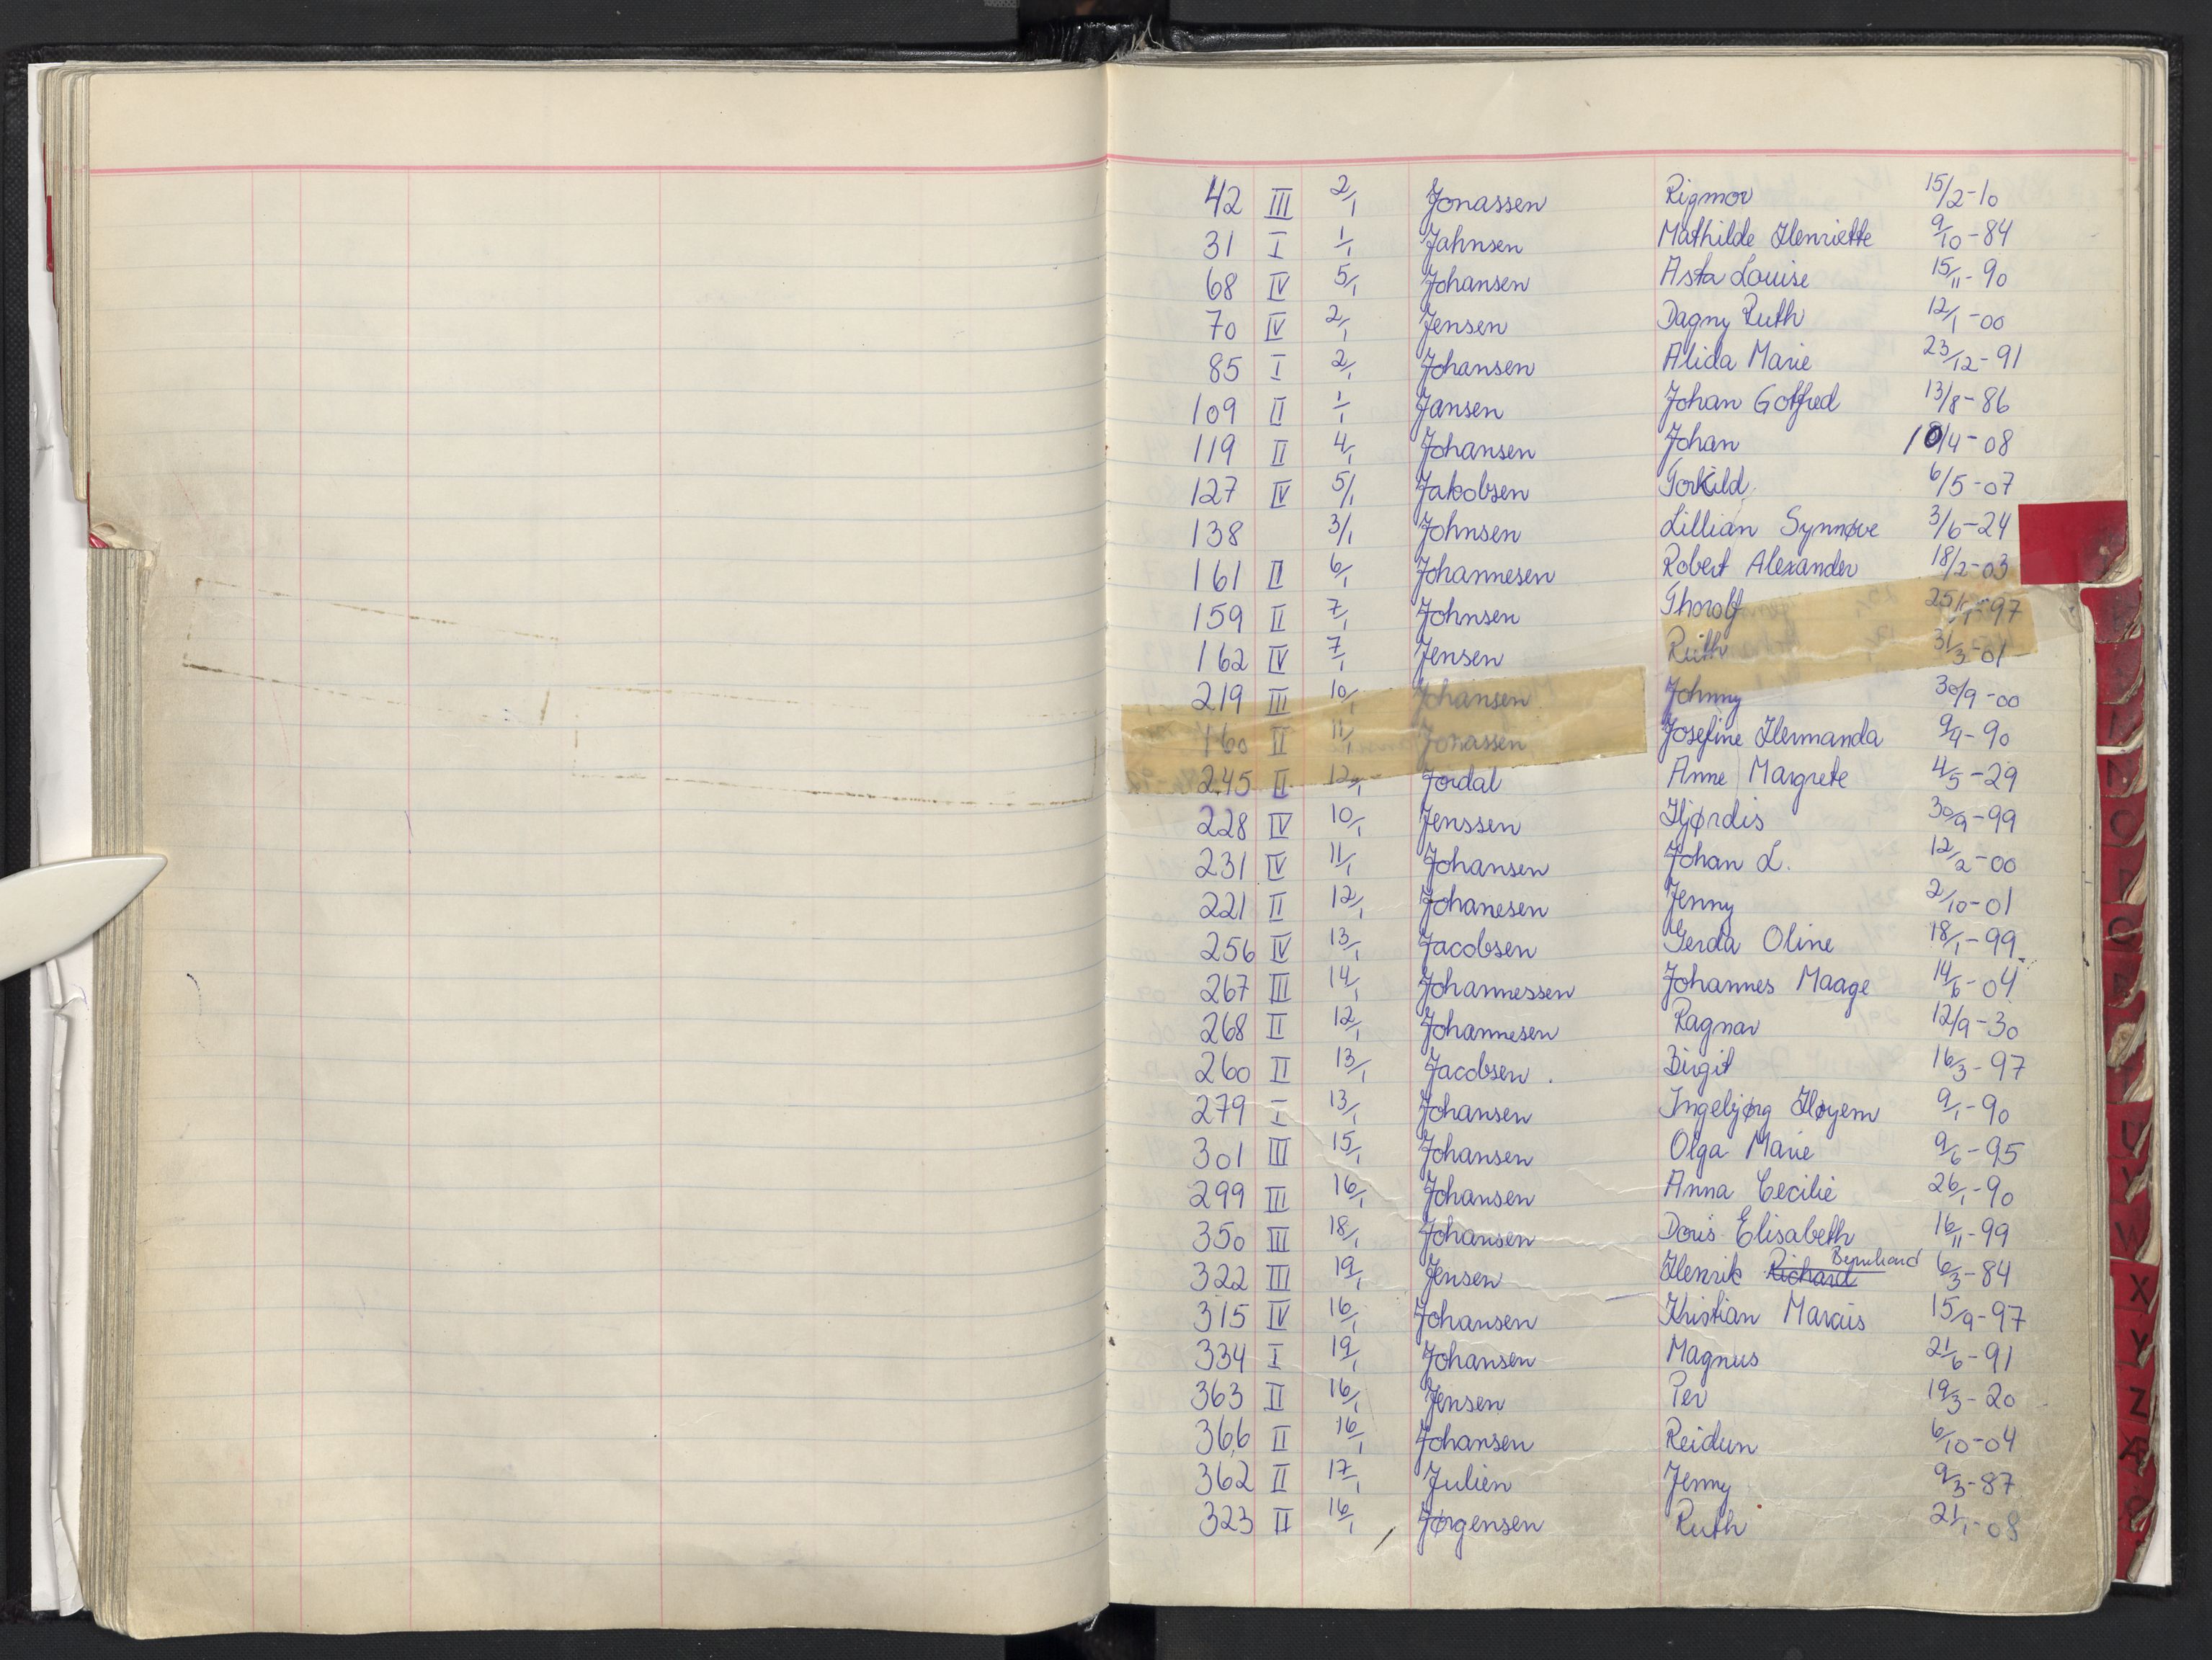 42 III 2/1 Jonassen Rigmor 15/2-10
31 I 1/1 Jahnsen Mathilde Henriette 9/10-84
68 IV 5/1 Johansen Asta Louise 15/11-90
70 IV 2/1 Jensen Dagny Ruth 12/1-00
85 I 2/1 Johansen Alida Marie 23/12-91
109 II 1/1 Jansen Johan Gotfred 13/8-86
119 II 4/1 Johansen Johan 10/4-08
127 IV 5/1 Jakobsen Torkild 6/5-07
138 3/1 Johnsen Lillian Synnøve 3/6-24
161 II 6/1 Johannesen Robert Alexander 18/2-03
159 II 7/1 Johnsen Thorolf 25/11-97
162 IV 7/1 Jensen Ruth 31/3-01
219 III 10/1 Johansen Johnny 30/9-00
160 II 11/1 Jonassen Josefine Hermanda 9/9-90
245 II 12/1 Jordal Anne Margrete 4/5-29
228 IV 10/1 Jenssen Hjørdis 30/9-99
231 IV 11/1 Johansen Johan L. 12/2-00
221 II 12/1 Johanesen Jenny 2/10-01
256 IV 13/1 Jacobsen Gerda Oline 18/1-99
267 III 14/1 Johannessen Johannes Maage 14/6-04
268 II 12/1 Johannesen Ragnar 12/9-30
260 II 13/1 Jacobsen. Birgit 16/3-97
279 I 13/1 Johansen Ingebjørg Høyem 9/1-90
301 III 15/1 Johansen Olga Marie 9/6-95
299 III 16/1 Johansen Anna Cecilie 26/1-90
350 III 18/1 Johansen Doris Elisabeth 16/11-99
322 III 19/1 Jensen Henrik Richard Bernhard 6/3-84
315 IV 16/1 Johansen Kristian Marcus 15/9-97
334 I 19/1 Johansen Magnus 21/6-91
363 II 16/1 Jensen Per 19/3-20
366 II 16/1 Johansen Reidun 6/10-04
362 II 17/1 Julien Jenny 9/3-87
323 II 16/1 Jørgensen Ruth 21/1-08
O
U
V
W
X
Y
Z
Æ
Ø